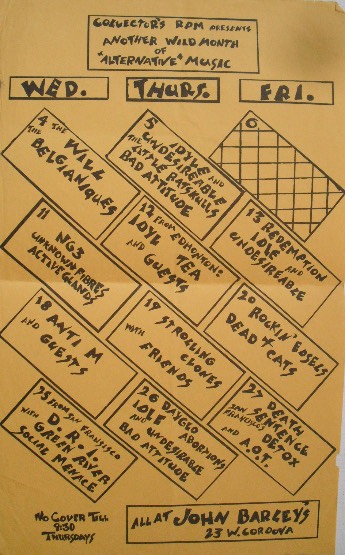 COLLECTOR'S RPM PRESENTS
ANOTHER WILD MONTH
OF
"ALTERNATIVE" MUSIC
WED.
THURS.
FRI.
4 THE WILL
THE BELGIANIQUES
5 IDYLE AND
UNDESIRABLE
THE LITTLE RATSKULLS
BAD ATTITUDE
6
11
NG3
UNKNOWN FIBRES
ACTIVE GLANDS
12 FROM EDMONTON:
IDYL TEA
AND GUESTS
13 REDEMPTION
IDLE AND
UNDESIRABLE
18 ANTI M
AND GUESTS
19 STROLLING
CLONES
WITH FRIENDS
20 ROCKIN' EDSELS
DEAD CATS
25 FROM SAN FRANCISCO
D.R.I.
WITH GREEN RIVER
SOCIAL MENACE
26 DAYGLO ABORTIONS
IDLE
AND UNDESIRABLE
BAD ATTITUDE
27 DEATH
SENTENCE
SAN FRANCISCO'S DETOX
AND A.O.T.
NO COVER TILL
9:30
THURSDAYS
ALL AT JOHN BARLEY'S
23 W. CORDOVA